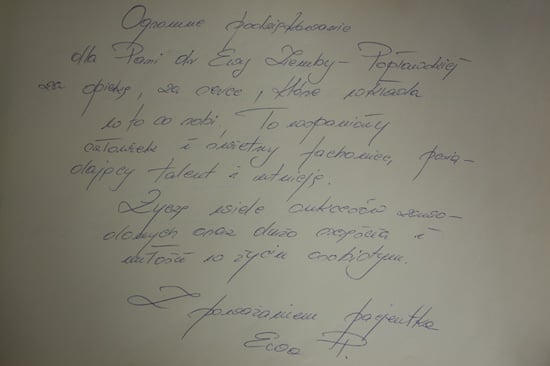 Ogromne podziękowanie
dla Pani dr Ewy Ziemby – Popławskiej
za opiekę, za serce, które wkłada
w to co robi. To wspaniały
człowiek i świetny fachowiec, posia-
dający talent i intuicję.
Życzę wiele sukcesów zawo-
dowych oraz dużo szczęścia i
miłości w życiu osobistym.
Z poważaniem pacjentka
Ewa P.